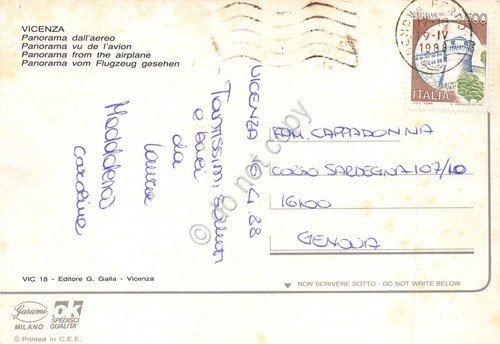 VICENZA
Panorama dall'aereo
Panorama vu de l'avion
Panorama from the airplane
Panorama vom Flugzeug gesehen
500
ITALIA
9-IV
VICENZA 6.4.88
Tantissimi saluti
e baci
da
Laura
Maddalena
Caroline
FAM. CAPPADONNA
CORSO SARDEGNA 107/10
16100
GENOVA
do not copy
VIC 18 - Editore G. Galla - Vicenza
NON SCRIVERE SOTTO - DO NOT WRITE BELOW
Garami
MILANO
ok
SPEDISCI
QUALITA'
© Printed in C.E.E.